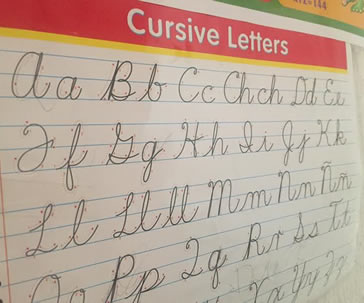 Cursive Letters
Aa Bb Cc Ch ch Dd Ee
Ff Gg Hh Ii Jj Kk
Ll Ll ll Mm Nn Ññ
Pp Qq Rr Ss Tt
Yy